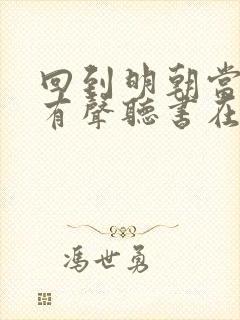 回到明朝當
有聲聽書在
馮世勇